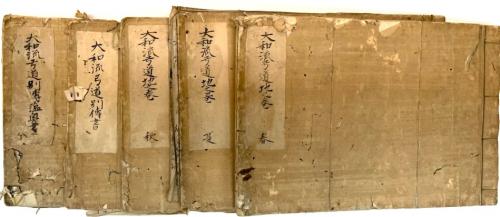 大和流弓道地之巻
春
大和流弓道地之巻
夏
大和流弓道地之巻
秋
大和流弓道別傳書
大和流弓道別傳奥書